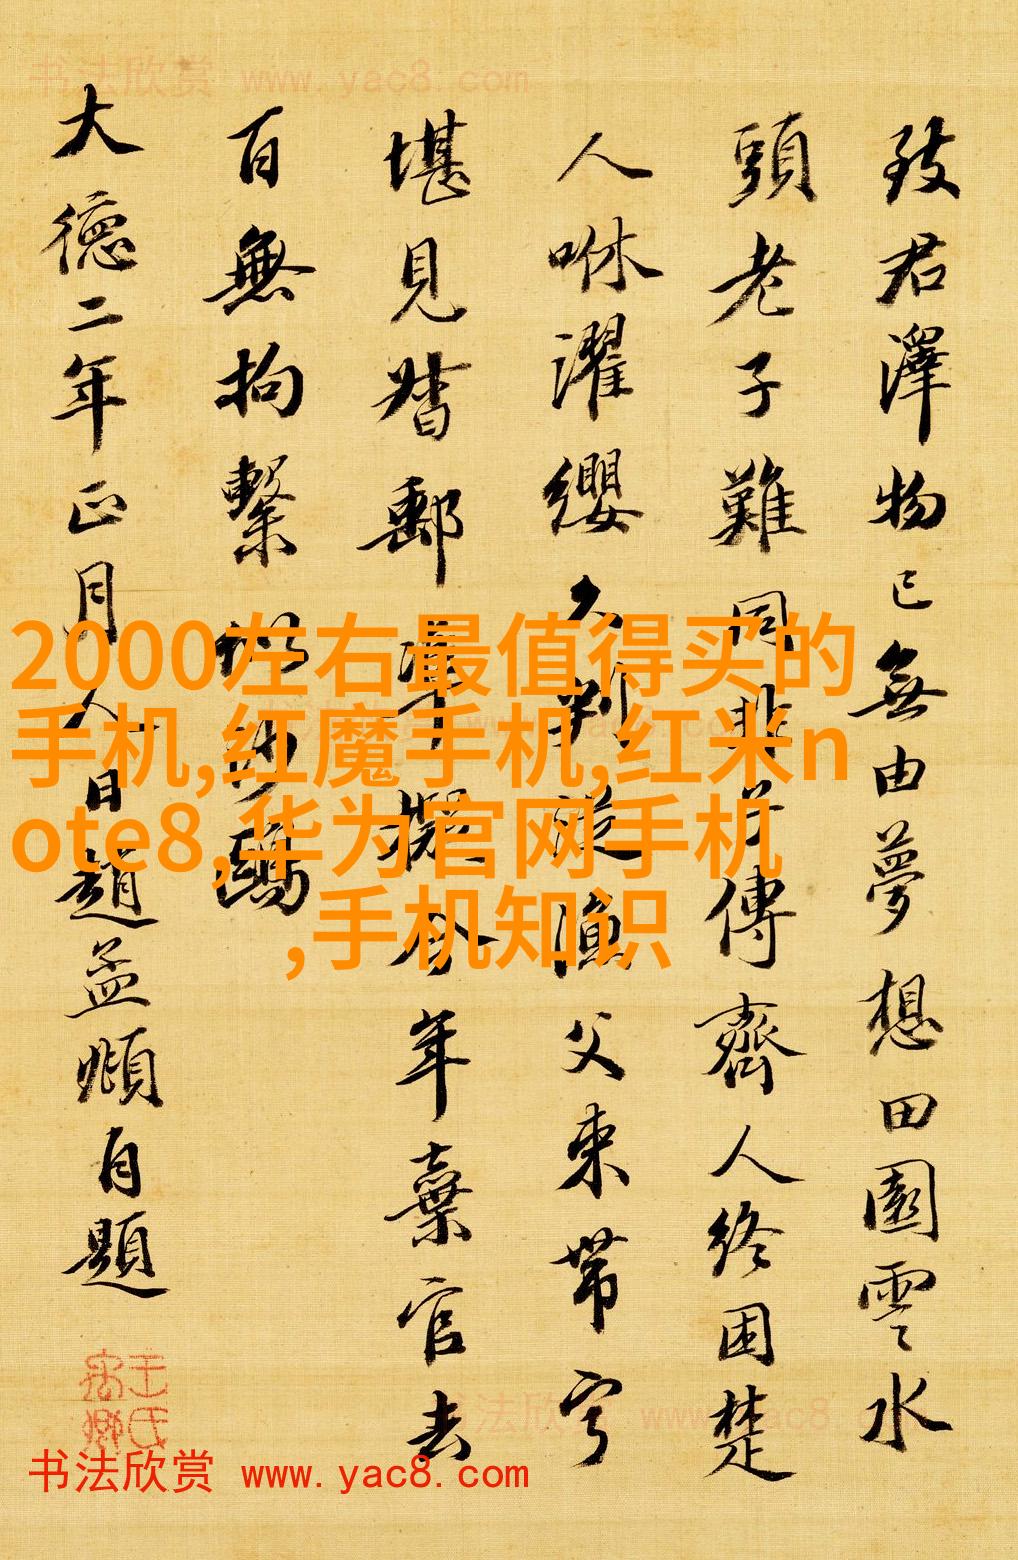 书法欣赏 www.yac8.com
致君泽物已無由夢想田園雲水
頭老子難同非子傳齊人終困楚
人咻濯纓久判從漁父束帶寧
堪見督郵準擬今年棄官去
百無拘繫似沙鷗
大德二年正月人日趙孟頫自題
2000左右最值得买的
手机,红魔手机,红米n
ote8,华为官网手机
,手机知识
书法欣赏 www.yac8.com
书法欣赏 www.yac8.com